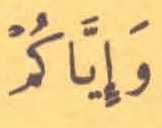 وَإِيَّاكُمْ